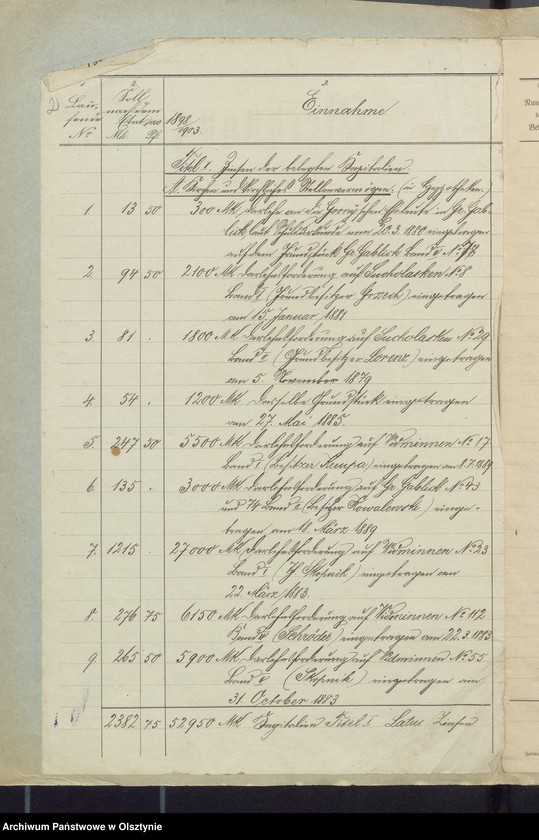 1. 2. 3.
Lau-
fende
No
Soll
nach dem
Etat pro
Mk. Pf.
1898/1903.
Einnahme
Titel I. Zinsen der belegten Kapitalien.
A. Kirchen und kirchliches Stellenvermögen. (in Hypotheken.
1. 13 50 300 Mk Darlehn an die Eheleute in Gr. Gab-
lick aus Schuldurkunde vom 20.3.1880 eingetragen
auf dem Grundstück Gr. Gablick Band No 78
2. 94 50 2100 Mk Darlehnsforderung auf Sucholasken No 8
Band I (Grundbesitzer Grzech) eingetragen
am 15. Januar 1881
3. 81 . 1800 Mk Darlehnsforderung auf Sucholasken No 29
Band (Grundbesitzer Lorenz) eingetragen
am 5. November 1879
4. 54 . 1200 Mk dasselbe Grundstück eingetragen
am 27. Mai 1885.
5. 247 50 5500 Mk Darlehnsforderung auf Widminnen No 17
Band I (Besitzer ) eingetragen am 8.7.1889
6. 135 . 3000 Mk Darlehnsforderung auf Gr. Gablick No 43
und 74 Band (Besitzer Kowalewski) einge-
tragen am 11. März 1889
7. 1215 . 27000 Mk Darlehnsforderung auf Widminnen No 23
Band I ( Skopnik) eingetragen am
22. März 1883.
8. 276 75 6150 Mk Darlehnsforderung auf Widminnen No 112
Band (Schröder) eingetragen am 22.3.1883
9. 265 50 5900 Mk Darlehnsforderung auf Widminnen No 55
Band (Skopnik) eingetragen am
31. October 1883
2382 75 52950 Mk Kapitalien Titel I Latus Zinsen
Archiwum Państwowe w Olsztynie